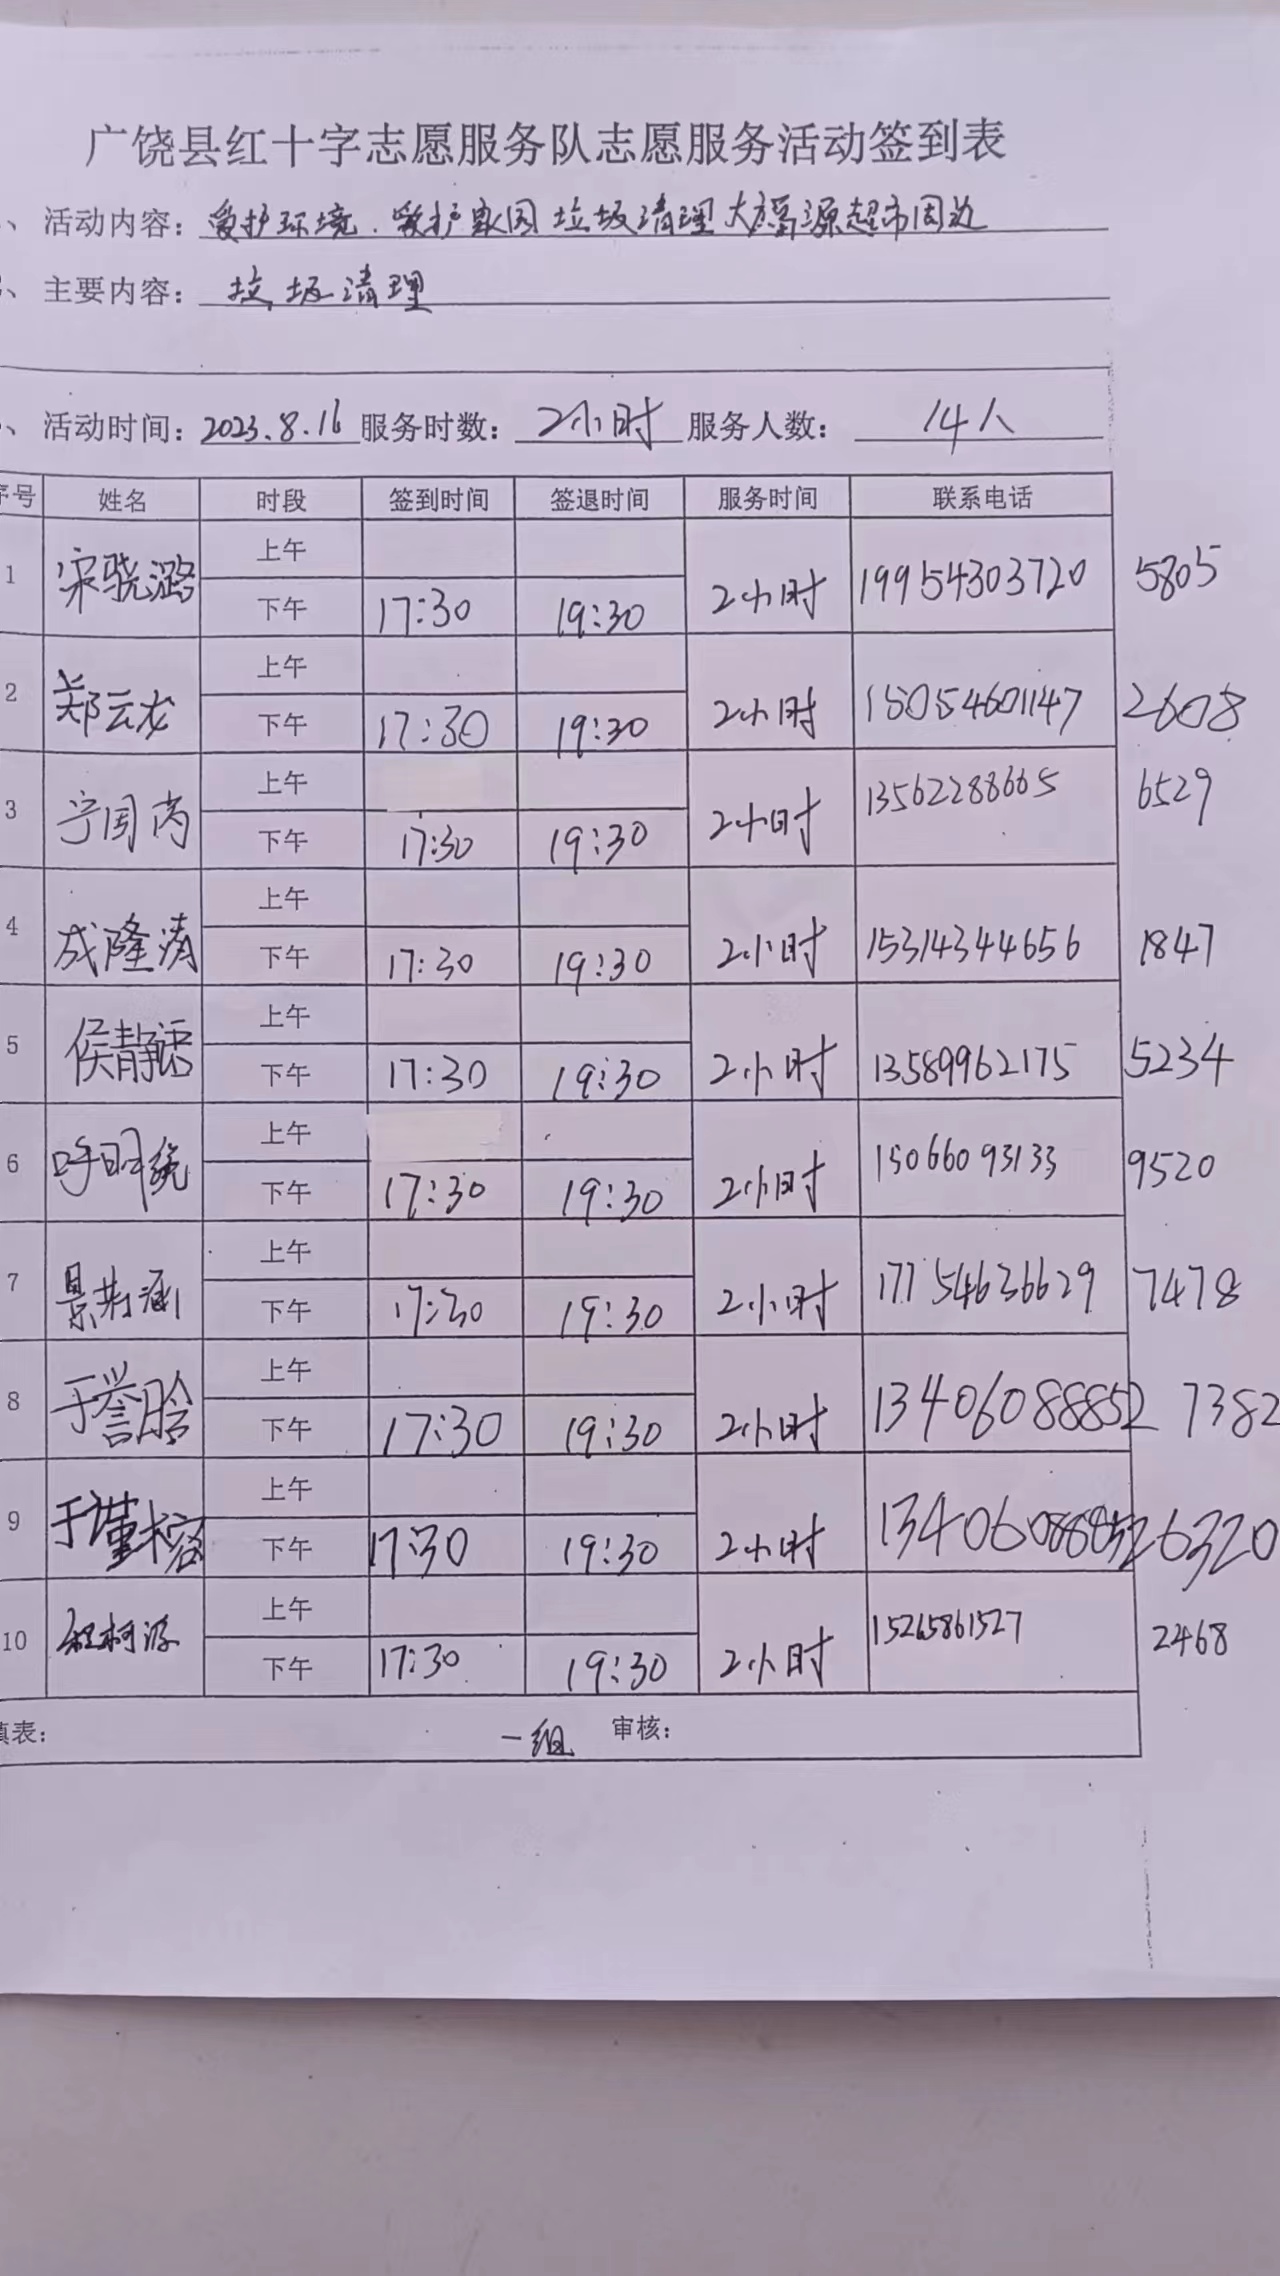 广饶县红十字志愿服务队志愿服务活动签到表
、 活动内容: 爱护环境.爱护家园 垃圾清理 大福源超市周边
、 主要内容: 垃圾清理
、 活动时间: 2023.8.16 服务时数: 2小时 服务人数: 14人
序号 姓名 时段 签到时间 签退时间 服务时间 联系电话
上午
1 宋骁潞 2小时 19954303720 5805
下午 17:30 19:30
上午
2 郑云龙 2小时 15054601147 2608
下午 17:30 19:30
上午
3 宁国芮 2小时 13562288665 6529
下午 17:30 19:30
上午
4 成隆涛 2小时 15314344656 1847
下午 17:30 19:30
上午
5 侯静 2小时 13589962175 5234
下午 17:30 19:30
上午
6 呼明 2小时 15066093133 9520
下午 17:30 19:30
上午
7 景涵 2小时 17754636629 7478
下午 17:30 19:30
上午
8 于誉晗 2小时 13406088852 7382
下午 17:30 19:30
上午
9 于瑾榕 2小时 13406088852 6320
下午 17:30 19:30
上午
10 程柯源 2小时 15265861527 2468
下午 17:30 19:30
填表: 一组 审核: